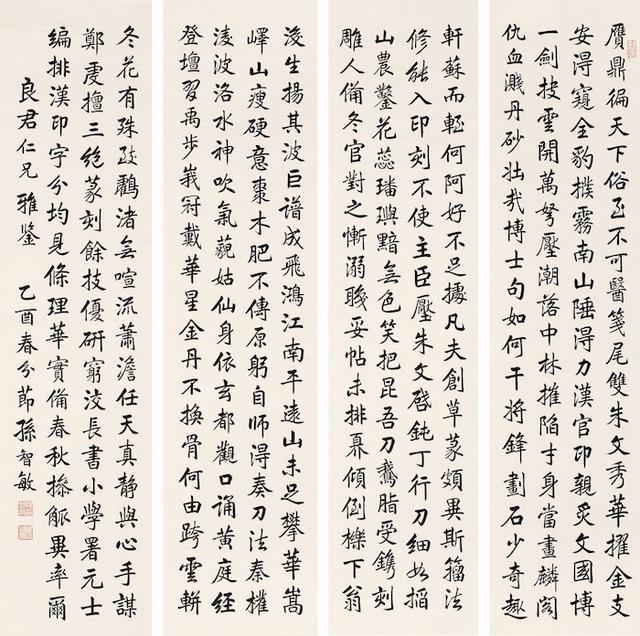 贋鼎徧天下俗至不可醫箋尾雙朱文秀華擢金支
安得窺全豹撲霧南山陲得力漢官印親炙文國博
一劍技雲開萬弩壓潮落中林摧陷才身當畫麟閣
仇血濺丹砂壯哉博士句如何干將鋒劃石少奇趣
軒蘇而輊何阿好不足據凡夫創草篆頗異斯籀法
修能入印刻不使主臣壓朱文啓鈍丁行刀細如掐
山農鑿花蕊璠璵黯無色笑把昆吾刀鵞脂受鐫刻
雕人備冬官對之慚溺職妥帖未排奡傾倒櫟下翁
浚生揚其波巨譜成飛鴻江南平遠山未足攀華嵩
嶧山瘦硬意棗木肥不傳原躬自師得奏刀法秦權
淩波洛水神吹氣藐姑仙身依玄都觀口誦黃庭經
登壇習禹步峩冠戴華星金丹不換骨何由跨雲軿
冬花有殊致鸝渚無喧流蕭澹任天真靜與心手謀
鄭虔擅三絶篆刻餘技優研窮汶長書小學署元士
編排漢印字分均見條理華實備春秋操觚異率爾
良君仁兄雅鑒 乙酉春分節孫智敏